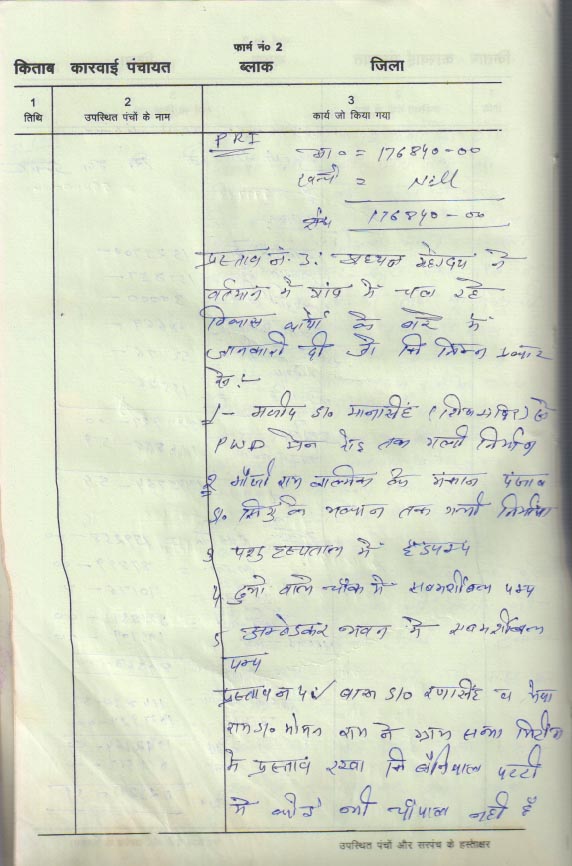 फार्म नं० 2
किताब कारवाई पंचायत ब्लाक जिला
1 2 3
तिथि उपस्थित पंचों के नाम कार्य जो किया गया
PRI
= 176840-00
खर्चा = Nill
शेष 176840-00
प्रस्ताव नं. 3: महोदय ने
वर्तमान में गांव में चल रहे
विकास कार्यों के बारे में
जानकारी दी जो कि निम्न प्रकार
है:-
1- S/o मानसिंह (शिव मंदिर) से
PWD मेन रोड तक गली निर्माण
2 राम वाल्मीक के मकान पंजाब
S/o सिंह के मकान तक गली निर्माण
3 पशु हस्पताल में हैंडपम्प
4 वाले चौक में सबमर्शीबल पम्प
5 अम्बेडकर भवन में सबमर्शीबल
पम्प
प्रस्ताव न 4: S/o रणसिंह व
राम S/o राम ने ग्राम सभा मिटिंग
में प्रस्ताव रखा कि पट्टी
में कोई भी चौपाल नहीं है
उपस्थित पंचों और सरपंच के हस्ताक्षर